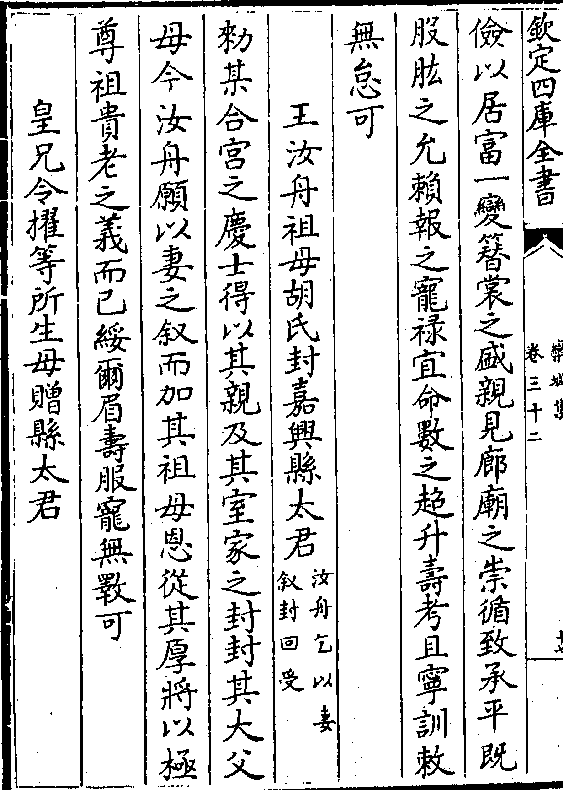 欽定四庫全書
欒城集
卷三十二
儉以居富一變簪裳之盛親見廊廟之崇循致承平既
股肱之允賴報之寵祿宜命數之超升壽考且寧訓敕
無怠可
王汝舟祖母胡氏封嘉興縣太君汝舟乞以妻叙封回受
勑某合宮之慶士得以其親及其室家之封封其大父
母今汝舟願以妻之叙而加其祖母恩從其厚將以極
尊祖貴老之義而已綏爾眉壽服寵無斁可
皇兄令擢等所生母贈縣太君